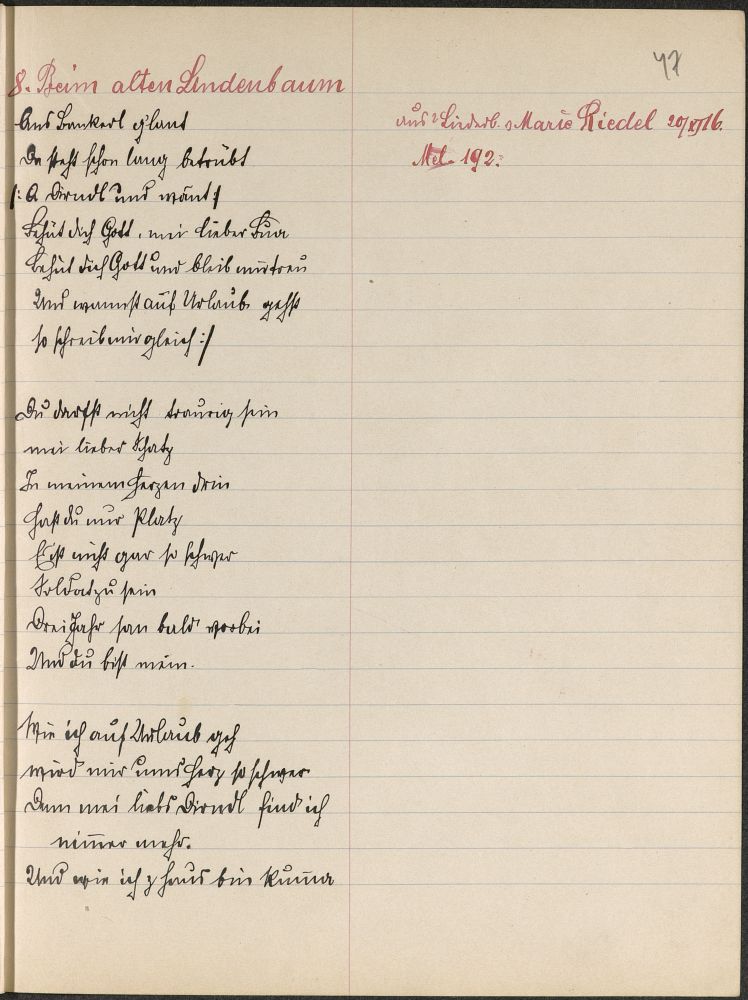 47
8. Beim alten Lindenbaum
Ans Bankerl g'lant
Da steht schon lang betrübt
/: A Dirndl und want :/
Behüt dich Gott, mei lieber Bua
Behüt dich Gott und bleib mir treu
Und wannst auf Urlaub gehst
so schreib mir gleich :/
Du darfst nicht traurig sein
mei lieber Schatz
In meinem Herzen drin
Hast du nur Platz
Es ist nicht gar so schwer
Soldat zu sein
Drei Jahr san bald vorbei
Und du bist mein.
Wie ich auf Urlaub geh
wird mir ums Herz so schwer
Denn mei liebs Dirndl find ich
nim̅er mehr.
Und wie ich z'haus bin kum̅a
aus d. Liederb. v. Marie Riedel 20/XI 16.
Mel. 192.